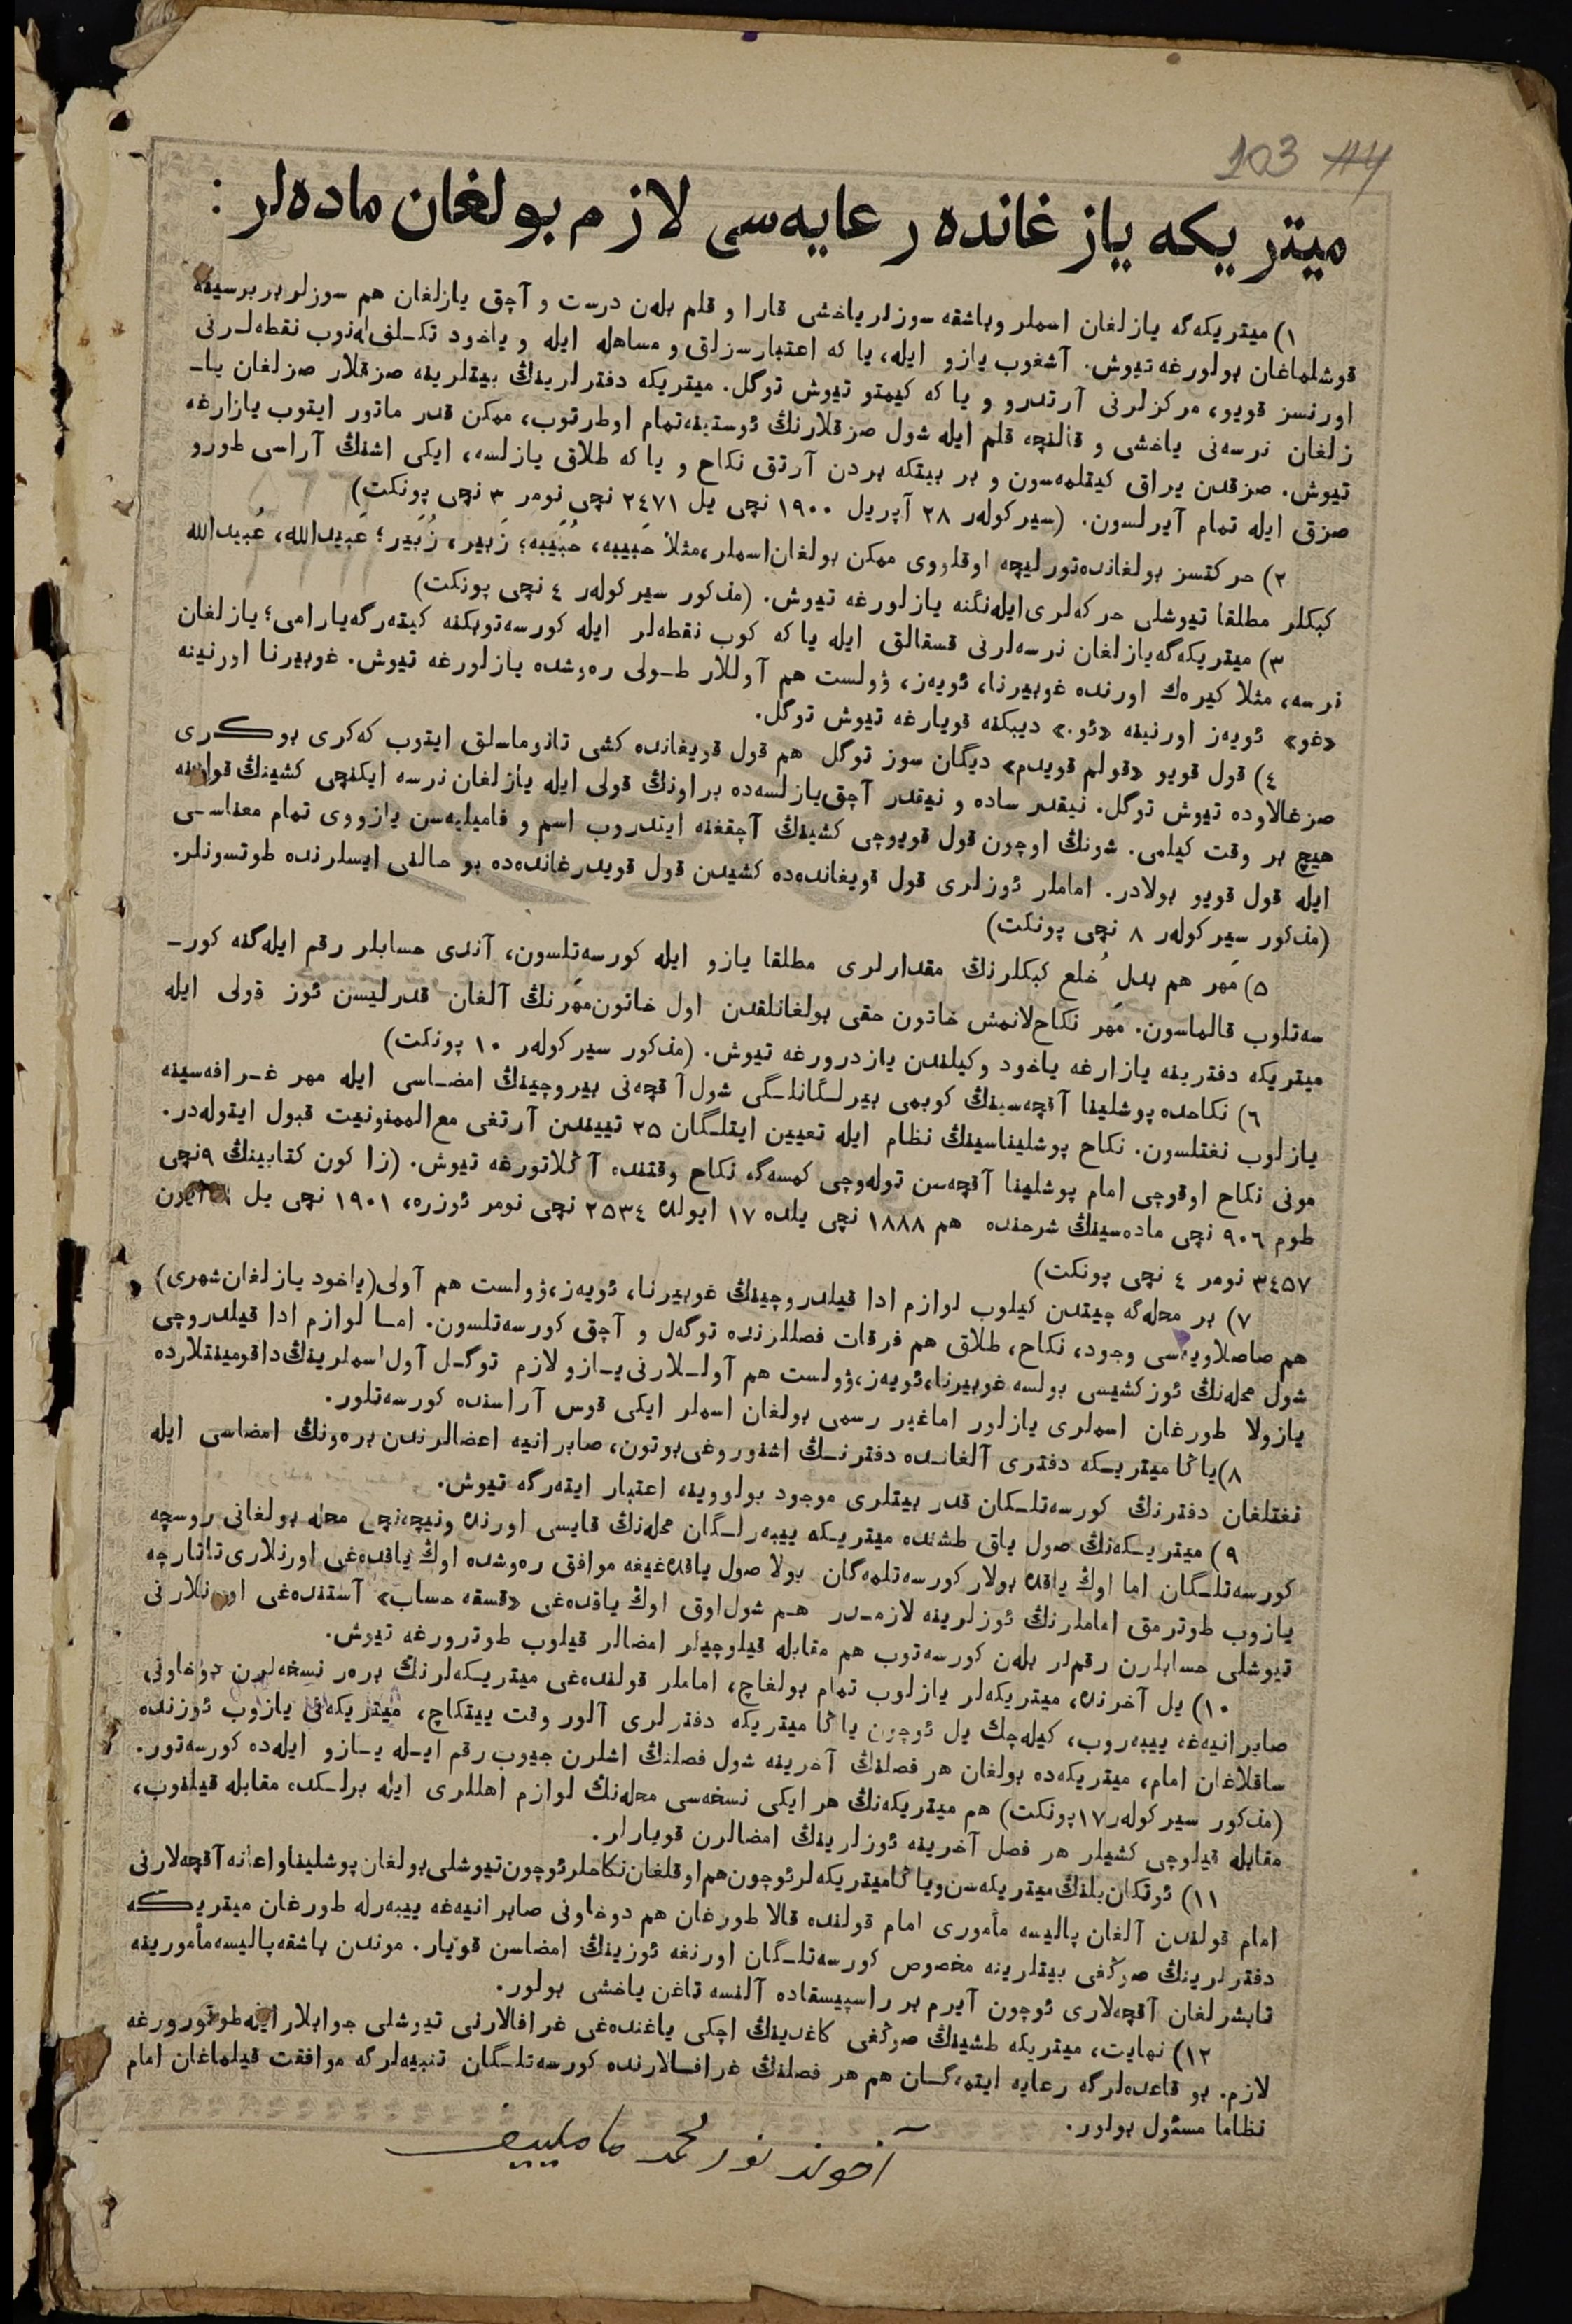 103 114
ميتريكه يازغانده رعايه‌سى لازم بولغان ماده‌لر :
١) ميتريكه‌گه يازلغان اسملر وباشقه سوزلر ياخشى قارا و قلم بله‌ن درست و آچق يازلغان هم سوزلر بربرسينه
قوشلماغان بولورغه تيوش. آشغوب يازو ايله، يا كه اعتبارسزلق و مساهله ايله و ياخود تكـلف له‌نوب نقطه‌لـرنى
اورنسز قويو، مركزلرنى آرتدرو و يا كه كيمتو تيوش توگل. ميتريكه دفترلرينڭ بيتلرينه صزقلار صزلغان يا‍ـ
زلغان نرسه‌نى ياخشى و قالنچه قلم ايله شول صزقلارنڭ ئوستينه‌تمام اوطرتوب، ممكن قدر ماتور ايتوب يازارغه
تيوش. صزقدن يراق كيتلمه‌سون و بر بيتكه بردن آرتق نكاح و يا كه طلاق يازلسه، ايكى اشنڭ آراسى طورو
صزق ايله تمام آيرلسون. (سيركوله‌ر ٢٨ آپريل ١٩٠٠ نچى يل ٢٤٧١ نچى نومر ٣ نچى پونكت)
٢) حركتسز بولغانده‌تورليچه اوقلووى ممكن بولغان‌اسملر،مثلا حَبيبه، حُبَيبه؛ زَبير، زُبَير؛ عَبيدالله، عُبيدالله
كبكلر مطلقا تيوشلى حركه‌لرى‌ايله‌نگنه يازلورغه تيوش. (مذكور سيركوله‌ر ٤ نچى پونكت)
٣) ميتريكه‌گه‌يازلغان نرسه‌لرنى قسقالق ايله يا كه كوب نقطه‌لر ايله كورسه‌توبكنه كيته‌رگه‌يارامى؛ يازلغان
نرسه، مثلا كيره‌ك اورنده غوبيرنا، ئويه‌ز، ۋولست هم آوللار طـولى ره‌وشده يازلورغه تيوش. غوبيرنا اورنينه
«غو» ئويه‌ز اورنينه «ئو.» ديبكنه قويارغه تيوش توگل.
٤) قول قويو «قولم قويدم» ديگان سوز توگل هم قول قويغانده كشى تانوماسلق ايتوب كه‌كرى بوكرى
صزغالاوده تيوش توگل. نيقدر ساده و نيقدر آچق‌يازلسه‌ده براونڭ قولى ايله يازلغان نرسه ايكنچى كشينڭ قولينه
هيچ بر وقت كيلمى. شونڭ اوچون قول قويوچى كشينڭ آچقغنه ايتدروب اسم و فاميليه‌سن يازووى تمام معناسـى
ايله قول قويو بولادر. اماملر ئوزلرى قول قويغانده‌ده كشيدن قول قويدرغانده‌ده بو حالنى ايسلرنده طوتسونلر.
(مذكور سيركوله‌ر ٨ نچى پونكت)
٥) مَهر هم بدلِ خُلع كبكلرنڭ مقدارلرى مطلقا يازو ايله كورسه‌تلسون، آندى حسابلر رقم ايله‌گنه كور‍ـ
سه‌تلوب قالماسون. مَهر نكاح‌لانمش خاتون حقى بولغانلقدن اول خاتون‌مهرنڭ آلغان قدرليسن ئوز قولى ايله
ميتريكه دفترينه يازارغه ياخود وكيلندن يازدرورغه تيوش. (مذكور سيركوله‌ر ١٠ پونكت)
٦) نكاحده پوشلينا آقچه‌سينڭ كوبمى بيرلـگانلـگى شول آقچه‌نى بيروچينڭ امضـاسى ايله مهر غـرافه‌سينه
يازلوب نغتلسون. نكاح پوشليناسينڭ نظام ايله تعيين ايتلـگان ٢٥ تييندن آرتغى مع‌الممنونيت قبول ايتوله‌در.
مونى نكاح اوقوچى امام پوشلينا آقچه‌سن توله‌وچى كمسه‌گه نكاح وقتنده آڭلاتورغه تيوش. (زاكون كتابينڭ ٩نچى
طوم ٩٠٦ نچى ماده‌سينڭ شرحنده هم ١٨٨٨ نچى يلده ١٧ ايولده ٢٥٣٤ نچى نومر ئوزره، ١٩٠١ نچى يل ايون
٣٤٥٧ نومر ٤ نچى پونكت)
٧) بر محله‌گه چيتدن كيلوب لوازم ادا قيلدروچينڭ غوبيرنا، ئويه‌ز،ۋولست هم آولى(ياخود يازلغان‌شهرى)
هم صاصلاويه‌سى وجود، نكاح، طلاق هم فرقات فصللرنده توگه‌ل و آچق كورسه‌تلسون. امـا لوازم ادا قيلدروچى
شول محله‌نڭ ئوزكشيسى بولسه غوبيرنا،ئويه‌ز،ۋولست هم آولـلارنى‌يـازو لازم توگـل آول‌اسملرينڭ‌داقومينتلارده
يازولا طورغان اسملرى يازلور اماغير رسمى بولغان اسملر ايكى قوس آراسنده كورسه‌تلور.
٨)ياڭا ميتريـكه دفترى آلغانـده دفترنـڭ اشنوروغى‌بوتون، صابرانيه اعضالرندن بره‌ونڭ امضاسى ايله
نغتلغان دفترنڭ كورسه‌تلـكان قدر بيتلرى موجود بولووينه اعتبار ايته‌رگه تيوش.
٩) ميتريـكه‌نڭ صول ياق طشنده ميتريـكه ييبه‌رلـگان محله‌نڭ قايسى اورنده ونيچه‌نچى محله بولغانى روسچه
كورسه‌تلـگان اما اوڭ ياقده بولار كورسه‌تلمه‌گان بولا صول ياقده‌غيغه موافق ره‌وشده اوڭ ياقده‌غى اورنلارى تاتارچه
يازوب طوترمق اماملرنڭ ئوزلرينه لازمـدر هـم شول‌اوق اوڭ ياقده‌غى «قسقه حساب» آستنده‌غى اورنلارنى
تيوشلى حسابلرن رقم‌لر بله‌ن كورسه‌توب هم مقابله قيلوچيلر امضالر قيلوب طوترورغه تيوش.
١٠) يل آخرنده، ميتريكه‌لر يازلوب تمام بولغاچ، اماملر قولنده‌غى ميتريـكه‌لرنڭ بره‌ر نسخه‌لرن دوخاونى
صابرانيه‌غه ييبه‌روب، كيله‌چك يل ئوچون ياڭا ميتريكه دفترلرى آلور وقت ييتكاچ، ميتريكه‌نى يازوب ئوزنده
ساقلاغان امام، ميتريكه‌ده بولغان هر فصلنڭ آخرينه شول فصلنڭ اشلرن جيوب رقم ايـله يـازو ايله‌ده كورسه‌تور.
(مذكور سيركوله‌ر١٧پونكت) هم ميتريكه‌نڭ هر ايكى نسخه‌سى محله‌نڭ لوازم اهللرى ايله برلـكده مقابله قيلنوب،
مقابله قيلوچى كشيلر هر فصل آخرينه ئوزلرينڭ امضالرن قويارلر.
١١) ئوتكان‌يلنڭ ميتريكه‌سن وياڭاميتريكه‌لرئوچون‌هم‌اوقلغان‌نكاحلرئوچون‌تيوشلى‌بولغان‌پوشليناواعانه‌آقچه‌لارنى
امام قولندن آلغان پاليسه مأمورى امام قولنده قالا طورغان هم دوخاونى صابرانيه‌غه ييبه‌رله طورغان ميتريكه
دفترلرينڭ صوڭغى بيتلرينه مخصوص كورسه‌تلـگان اورنغه ئوزينڭ امضاسن قويار. موندن باشقه‌پاليسه‌مأمورينه
تابشرلغان آقچه‌لارى ئوچون آيرم بر راسپيسقاده آلنسه تاغن ياخشى بولور.
١٢) نهايت، ميتريكه طشينڭ صوڭغى كاغدينڭ اچكى ياغنده‌غى غرافالارنى تيوشلى جوابلار ايله‌طوتورورغه
لازم. بو قاعده‌لرگه رعايه ايتمه‌گـان هم هر فصلنڭ غرافـالارنده كورسه‌تلـگان تنبيه‌لرگه موافقت قيلماغان امام
نظاما مسئول بولور.
آخوند نورمحمد ماملييف